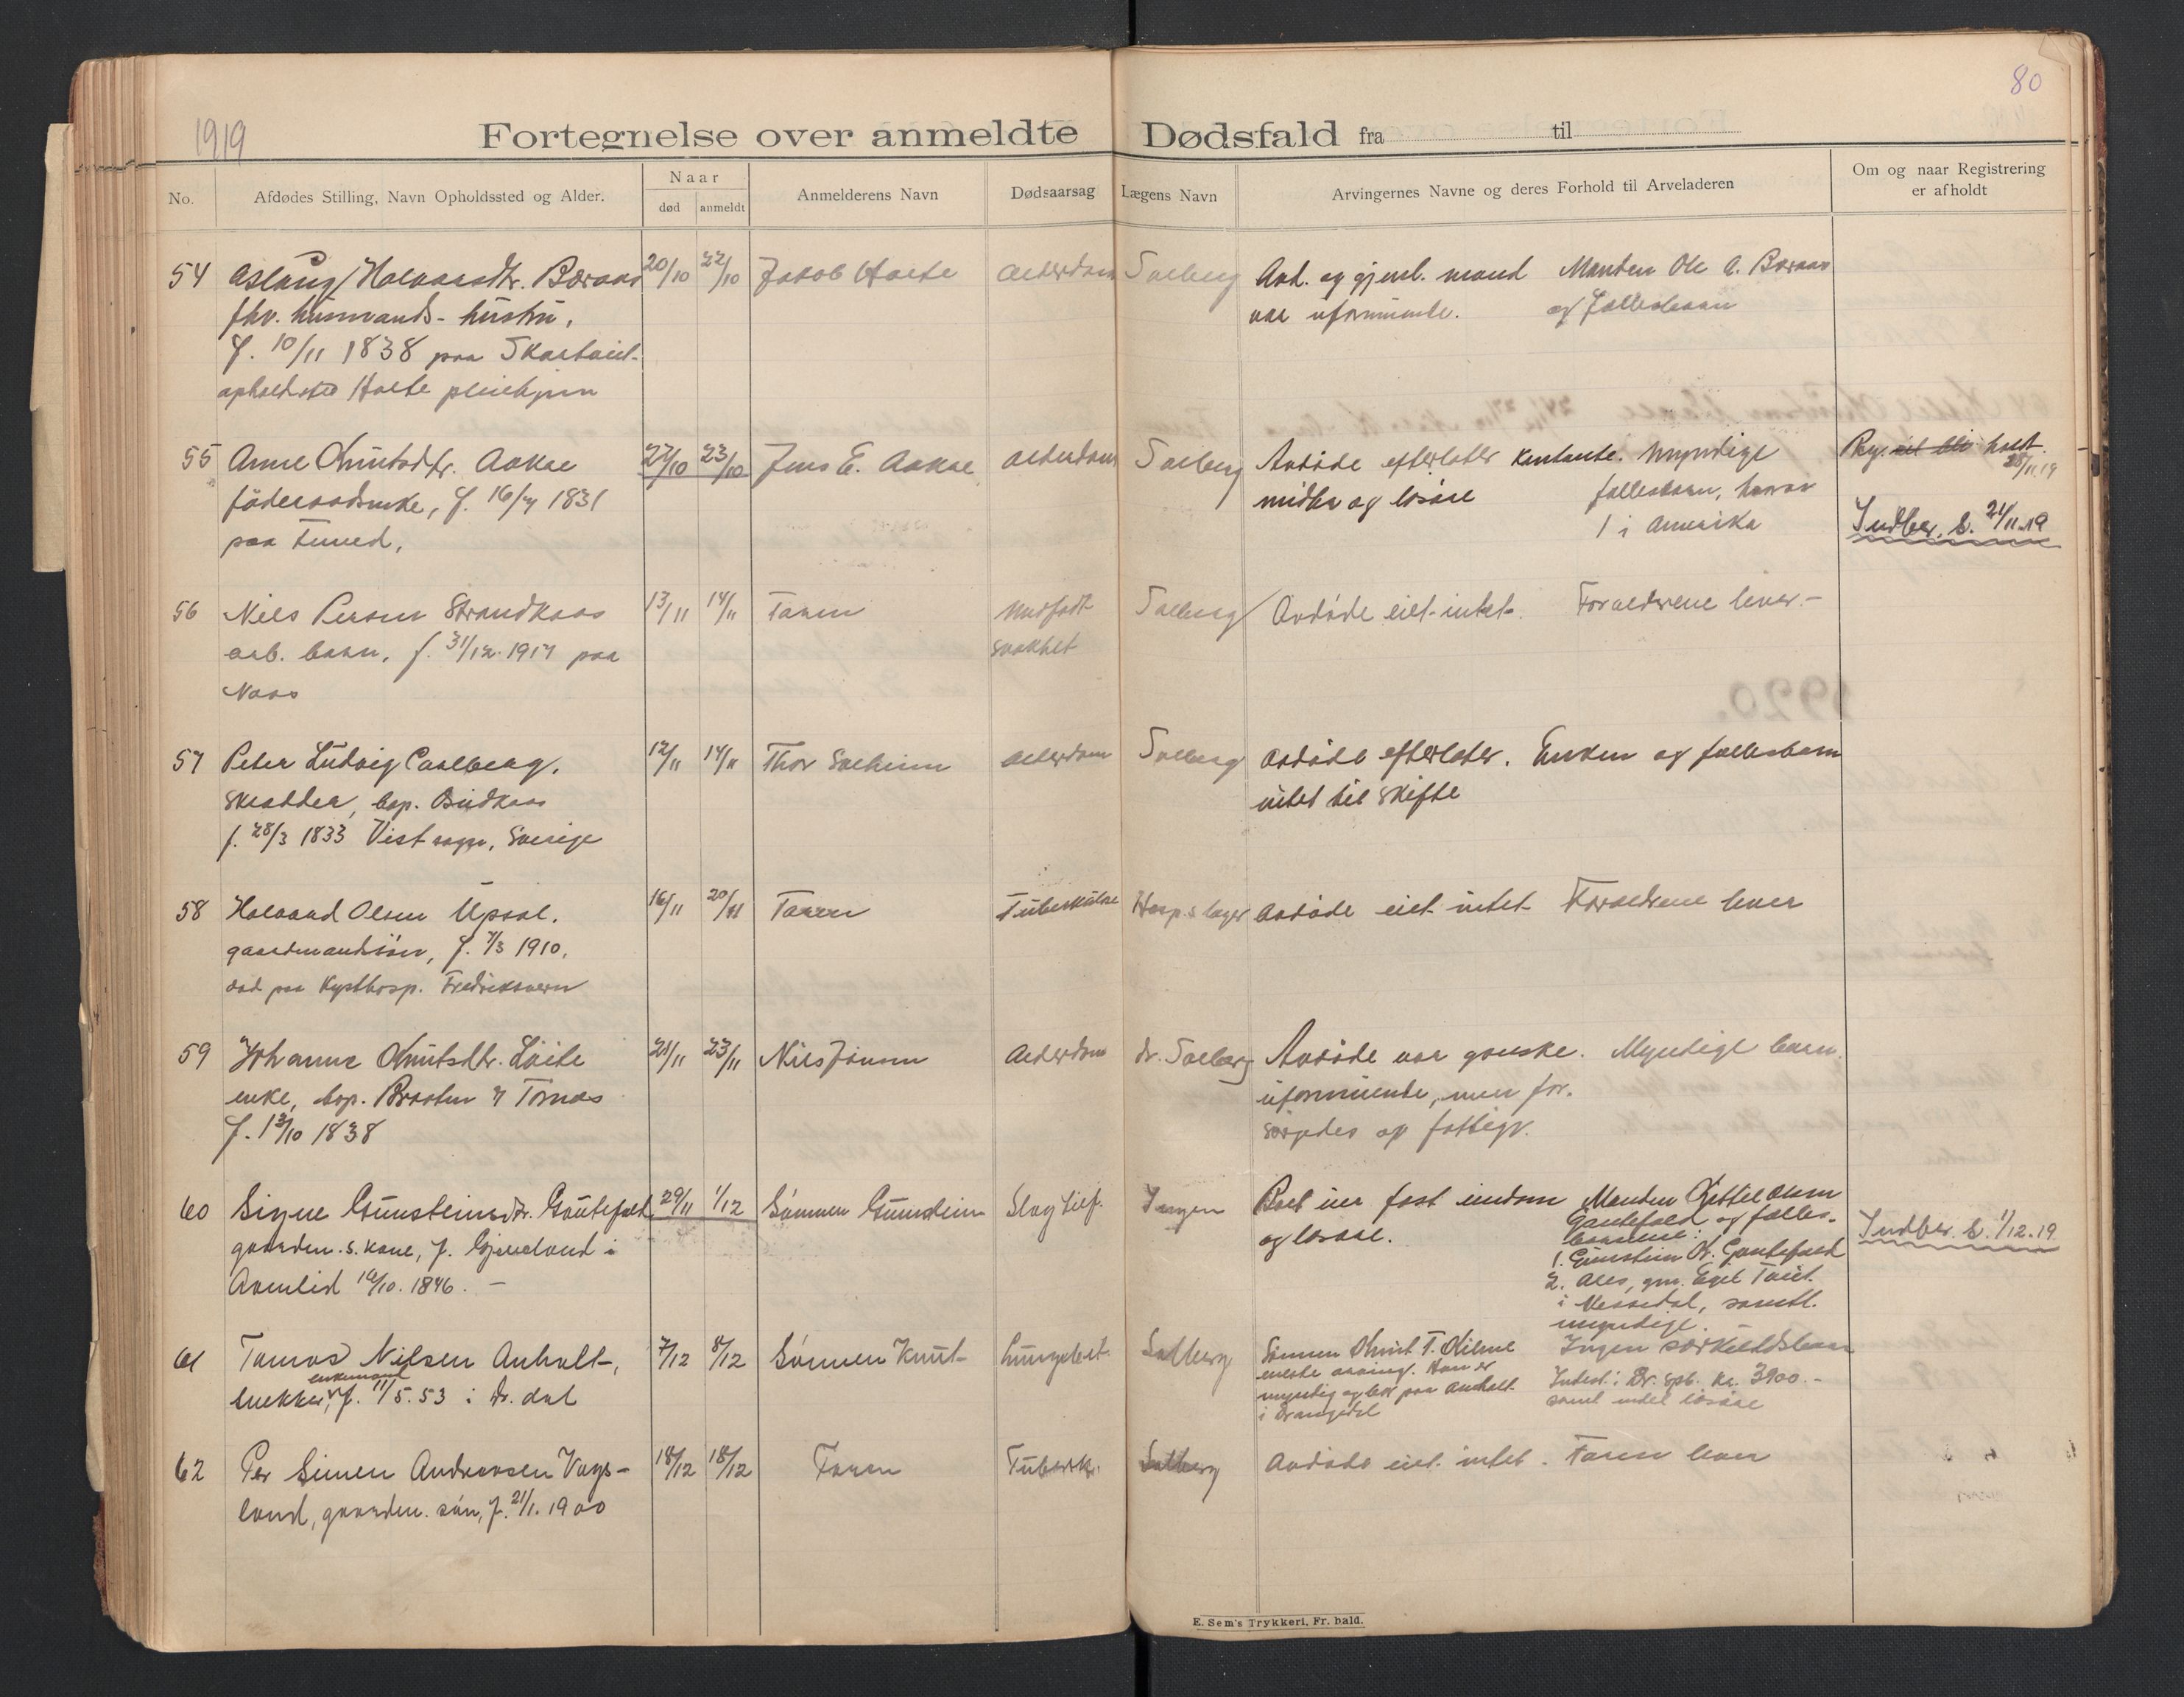 80
1919
Fortegnelse over anmeldte Dødsfald fra til
No.
Afdødes Stilling, Navn Opholdssted og Alder.
Naar
død anmeldt
Anmelderens Navn
Dødsaarsag
Lægens Navn
Arvingernes Navne og deres Forhold til Arveladeren
Om og naar Registrering
er afholdt
54 Aslaug Halvorsdtr. 20/10 22/10 Jakob Holte Alderdom Solberg Avd. og gjenl. mand Manden Ole A.
fhv. husmands-hustru, var uformuende. og fællesbarn
f. 10/11 1838 paa
opholdssted Holte pleiehjem
55 Anne Knutsdtr. Aakre 22/10 23/10 Jens E. Aakre Alderdom Solberg Avdøde efterlater kontante Myndige
føderaadsenke, f. 16/7 1831 midler og løsøre fællesbarn, hvorav
paa 1 i Amerika
Reg. holdt
28/11 19
Indber. s. 21/11.19
56 Niels Person Strandkaas 13/11 14/11 Faren Medfødt Solberg Avdøde eiet intet. Forældrene lever.-
arb. barn, f. 31/12 1917 paa svakhet
Naas
57 Peter Ludvig Carlberg, 12/11 14/11 Thor Solheim Alderdom Solberg Avdøde efterlater. Enken og fællesbarn
skrædder, bop. Budkaas intet til skifte
f. 28/3 1833 Vist sogn, Sverige
58 Halvard Olsen Upsal, 16/11 20/11 Faren Tuberkulose Hosp.s læge Avdøde eiet intet Forældrene lever
gaardmandssøn, f. 7/3 1910,
død paa Kysthosp. Fredriksvern
59 Johanne Knutsdtr. Løite 21/11 23/11 Nils Jonson Alderdom dr. Solberg Avdøde var ganske. Myndige barn.
enke, bop. Braaten u/ Tørnes uformuende, men for-
f. 13/10 1838 sørgedes af fattigv.
60 Signe Gunsteinsdtr. Gautefald 29/11 1/12 Sønnen Gunstein Slagtilf. Ingen Boet eier fast eiendom Manden Kittel Olsen
gaardm.s. kone, f. Gjeveland i og løsøre. Gautefald og fælles-
Aamlid 10. 1846. - barnene:
1. Gunstein K. Gautefald
2. Ales, gm. Egil Tveit
i Nissedal, samtl.
myndige.
Indber. s. 1/12.19
61 Tomas Nilsen Anholt-, 7/12 8/12 Sønnen Knut Lungebet. Solberg Sønnen Knut T. Ingen særkuldsbarn
enkemand eneste arving. Han er
f. 11/5.53 i Dr.dal myndig og bor paa Anholt. Indest. i Dr. spb. kr. 3900.-
i Drangedal samt endel løsøre
62 Per Simen Andreasen Vegs- 18/12 18/12 Faren Tuberk. Solberg Avdøde eiet intet. Faren lever
land, gaardm. søn, f. 21/1. 1900
E. Sem's Trykkeri, Fr. hald.